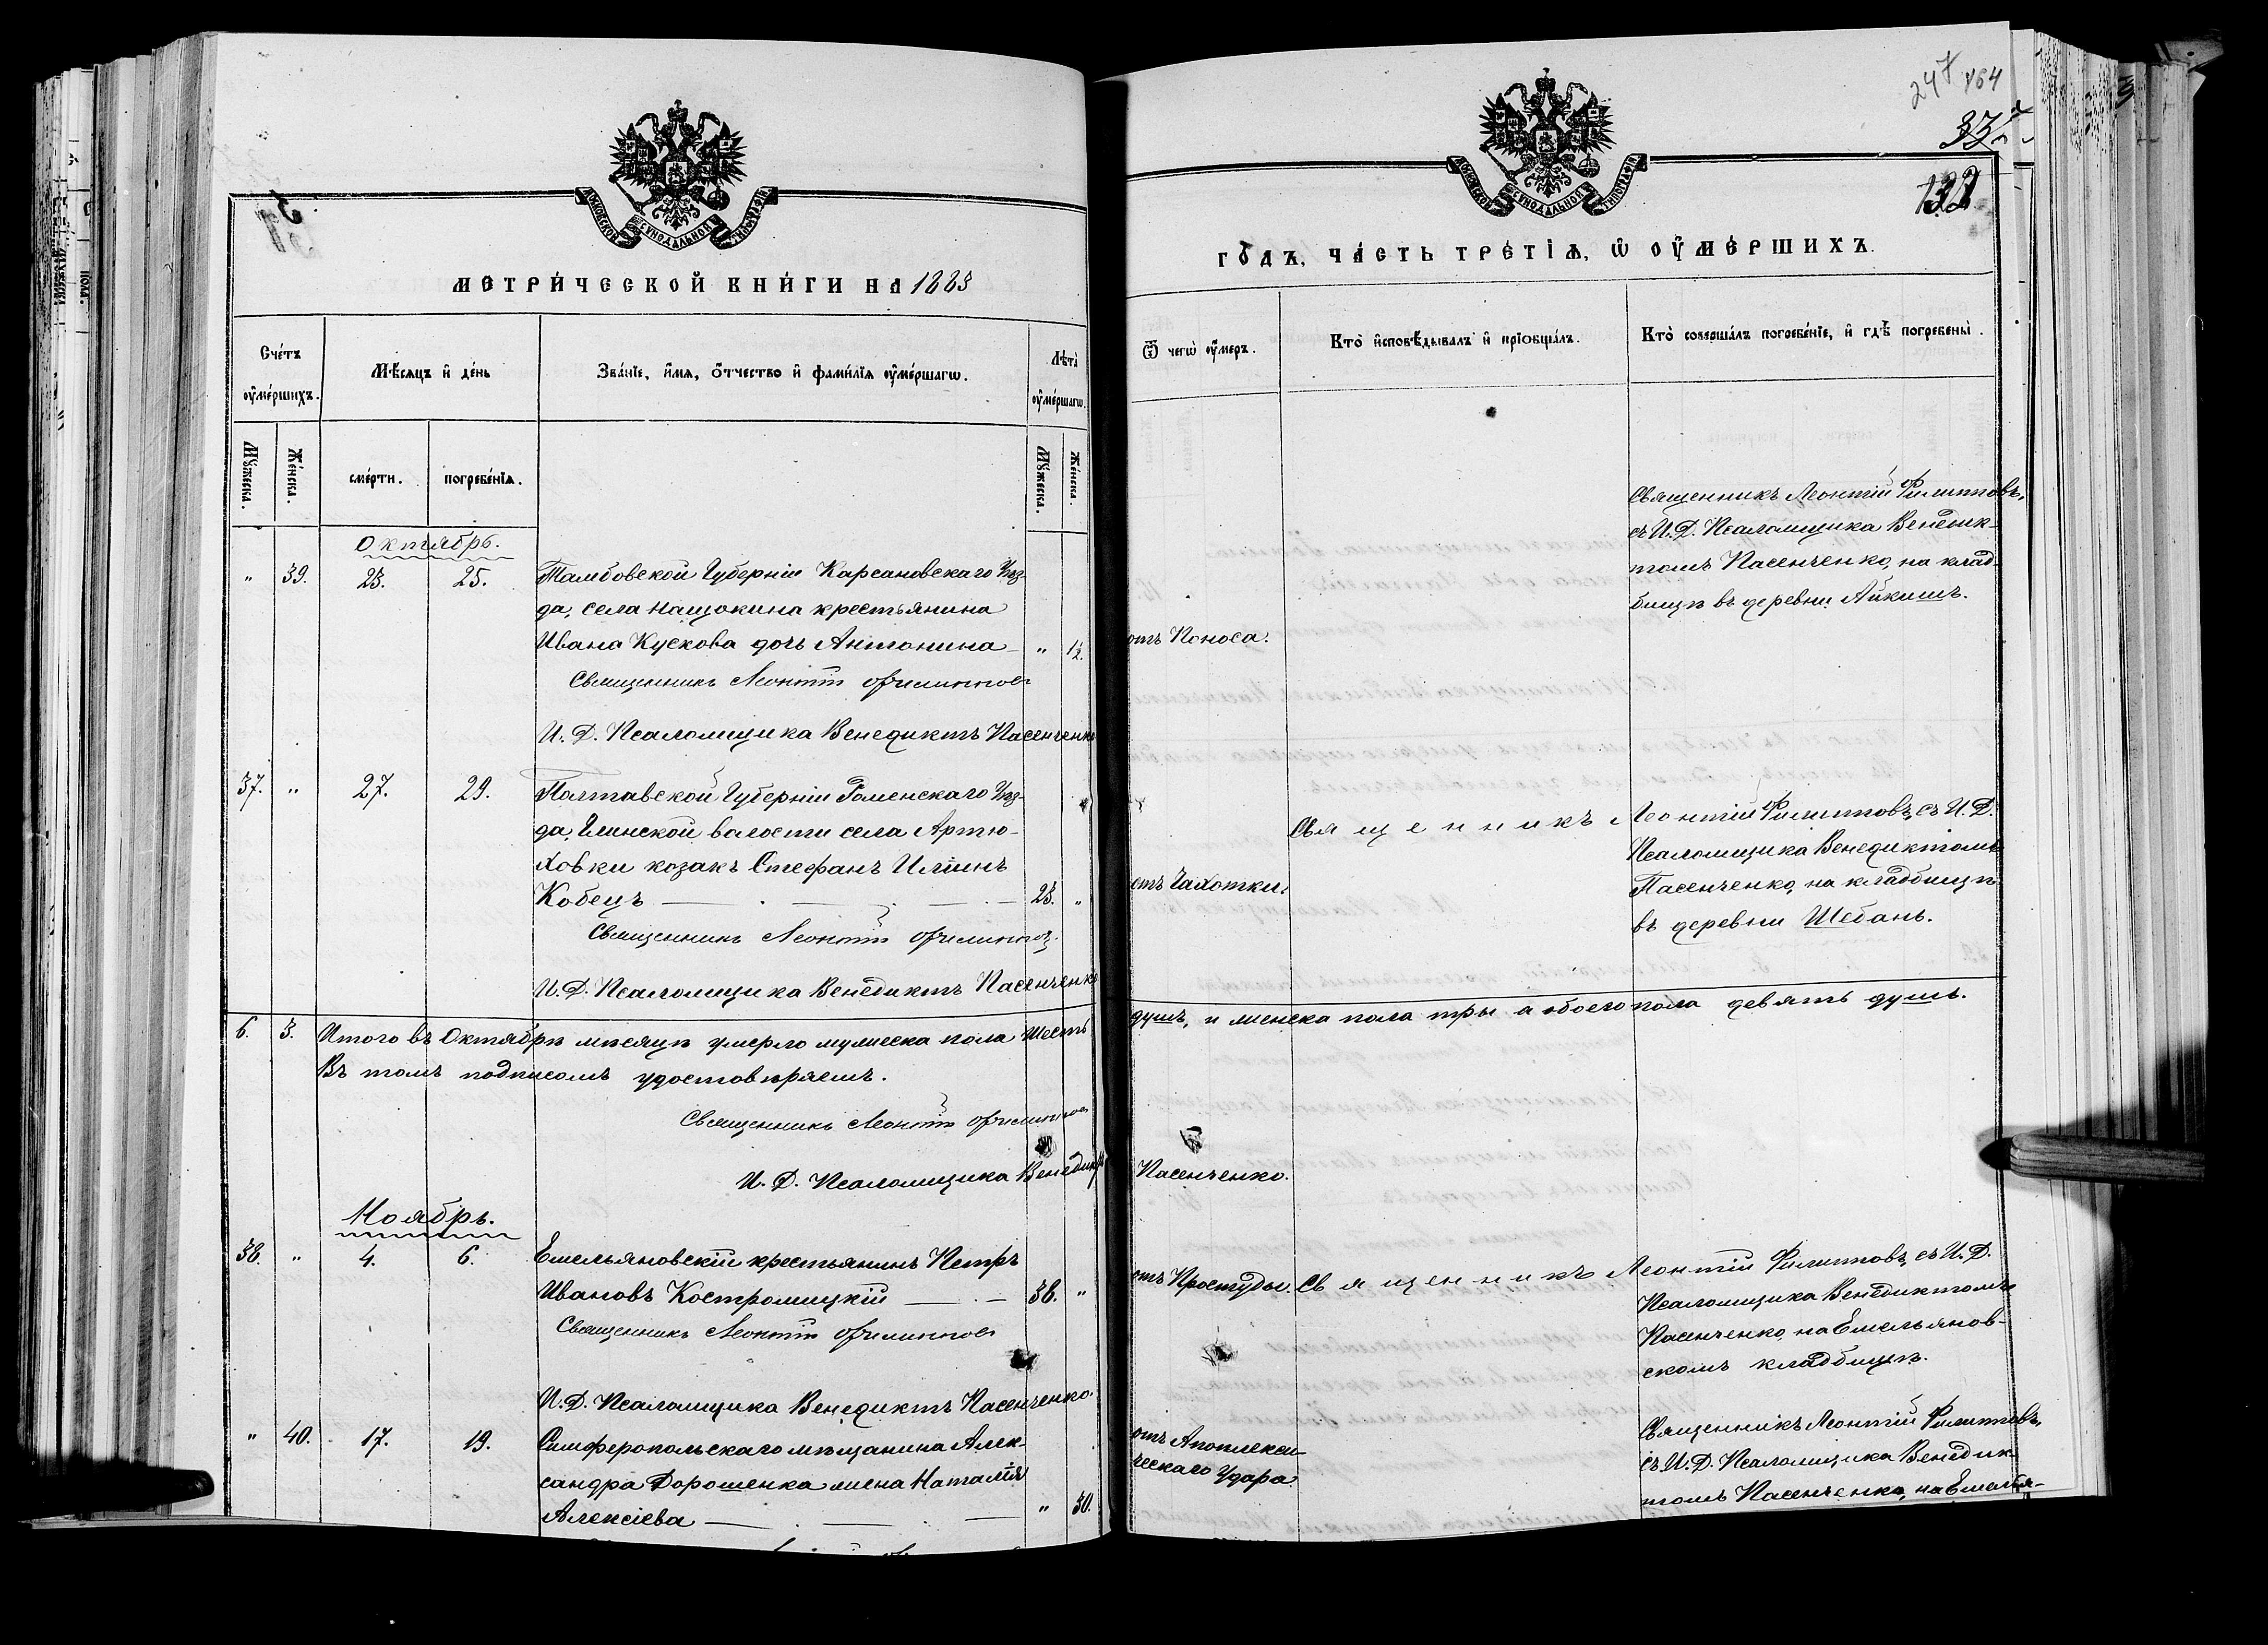 МОСКОВСКОЙ СѴНОДАЛЬНОЙ ТИПОГРАФІИ
МЕТРИ́ЧЕСКОЙ КНИ́ГИ НА 1883
Сче́тъ оу҆ме́ршихъ.
Мѣ́сяцъ и҆ де́нь
Зва́нїе, и҆́мя, ѻ҆́тчество и҆ фами́лїя оу҆ме́ршагѡ.
Лѣта̀ оу҆ме́ршагѡ.
Мꙋ́жеска. Же́нска.
сме́рти. погребе́нїѧ.
Мꙋ́жеска. Же́нска.
Октябрь.
" 39. 23. 25. Тамбовской Губерніи Карсановскаго Уѣз-
да, села Нащокина крестьянина
Ивана Кускова дочь Антонина — " 1½.
Священникъ Леонтій Филипповъ
И. Д. Псаломщика Венедиктъ Пасенченко
37. " 27. 29. Полтавской Губерніи Роменскаго Уѣз-
да, Глинской волости села Артю-
ховки козакъ Стефанъ Иліинъ
Кобецъ — 23. "
Священникъ Леонтій Филипповъ.
И. Д. Псаломщика Венедиктъ Пасенченко
6. 3. Итого въ Октябрѣ мѣсяцѣ умерло мужеска пола шесть
Въ томъ подписомъ удостовѣряемъ.
Священникъ Леонтій Филипповъ
И. Д. Псаломщика Венедиктъ
Ноябрь.
38. " 4. 6. Емельяновскій крестьянинъ Петръ
Ивановъ Костромицкій — 38. "
Священникъ Леонтій Филипповъ
И. Д. Псаломщика Венедиктъ Пасенченко.
" 40. 17. 19. Симферопольскаго мѣщанина Алек-
сандра Дорошенка жена Наталія
Алексіева — " 30.
247 164
132
МОСКОВСКОЙ СѴНОДАЛЬНОЙ ТИПОГРАФІИ
ГО́ДЪ, ЧА́СТЬ ТРЕ́ТІѦ, Ѿ ОУ҆МЕ́РШИХЪ.
Ѿ чегѡ̀ оу҆́меръ.
Кто̀ и҆сповѣ́дывалъ и҆ прїѡбща́лъ.
Кто̀ соверша́лъ погребе́нїе, и҆ гдѣ̀ погребены̀.
Священникъ Леонтій Филипповъ,
съ И. Д. Псаломщика Венедик-
томъ Пасенченко, на клад-
бищѣ въ деревни Айкишъ.
отъ Поноса.
Священникъ Леонтій Филипповъ, съ И. Д.
Псаломщика Венедиктомъ
отъ Чахотки. Пасенченко, на кладбищѣ
въ деревни Шебань.
душъ, и женска пола тры а обоего пола девять душъ.
Пасенченко.
отъ Простуды. Священникъ Леонтій Филипповъ, съ И. Д.
Псаломщика Венедиктомъ
Пасенченко, на Емельянов-
скомъ кладбищѣ.
Священникъ Леонтій Филипповъ,
отъ Апоплекси- съ И. Д. Псаломщика Венедик-
ческаго Удара. томъ Пасенченко, на Емелья-